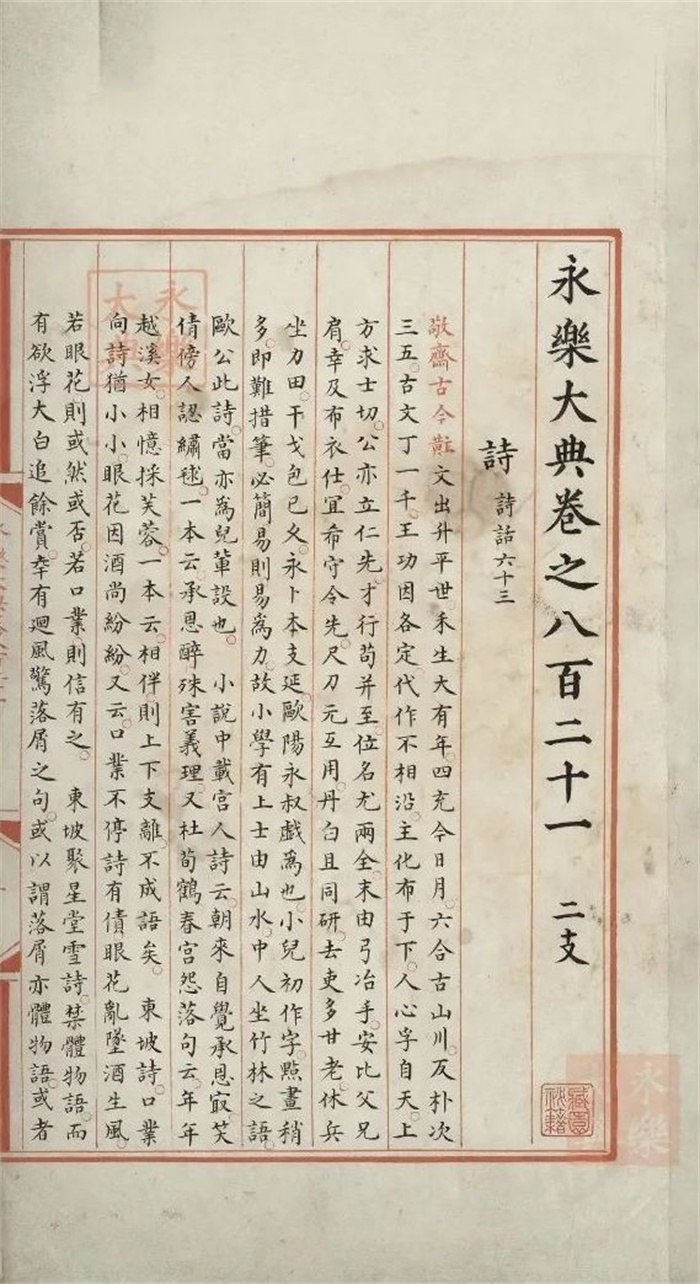 永樂大典卷之八百二十一 二支
詩 詩話六十三
敬齋古今黈文出升平世。禾生大有年。四充今日月。六合古山川。反朴次
三五。古文丁一千。王功因各定。代作不相沿。主化布于下。人心孚自天。上
方求士切。公亦立仁先。才行苟并至。位名尤兩全。末由弓冶手。安比父兄
肩。幸及布衣仕。宜希守令先。尺刀元互用。丹白且同研。去吏多甘老。休兵
坐力田。干戈包已久。永卜本支延。歐陽永叔戲爲也。小兒初作字。點畫稍
多。即難措筆。必簡易則易爲力。故小學有上士由山水。中人坐竹林之語。
歐公此詩。當亦爲兒輩設也。 小說中載宮人詩云。朝來自覺承恩㝡。笑
倩傍人認繡毬。一本云。承恩醉殊害義理。又杜荀鶴春宮怨落句云。年年
越溪女。相憶採芙蓉。一本云。相伴則上下支離。不成語矣。 東坡詩。口業
向詩猶小小。眼花因酒尚紛紛。又云。口業不停詩有債。眼花亂墜酒生風。
若眼花。則或然或否。若口業。則信有之。 東坡聚星堂雪詩。禁體物語。而
有欲浮大白追餘賞。幸有迴風驚落屑之句。或以謂落屑亦體物語。或者
永樂大典
永樂
臧園祕籍